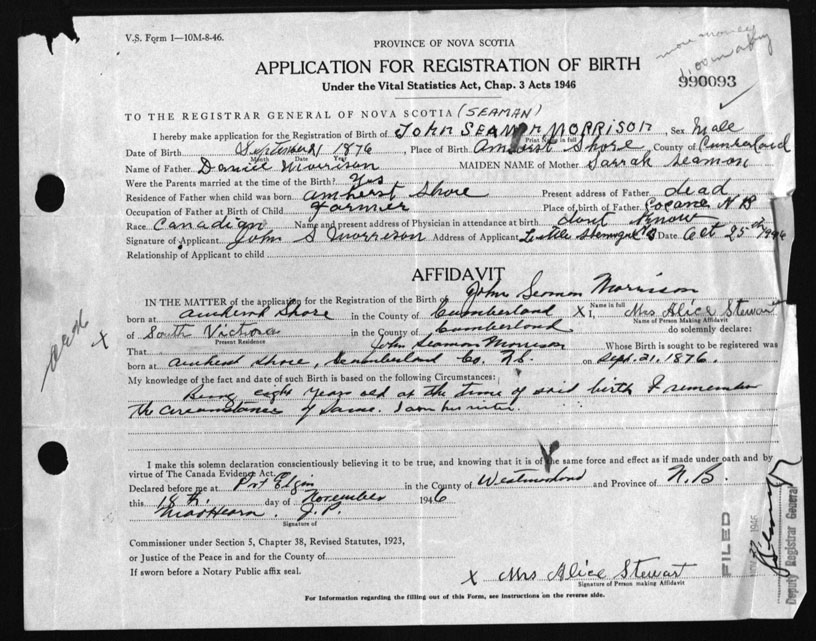 V.S. Form 1—10M-8-46.
more money
PROVINCE OF NOVA SCOTIA
APPLICATION FOR REGISTRATION OF BIRTH
Under the Vital Statistics Act, Chap. 3 Acts 1946
990093
TO THE REGISTRAR GENERAL OF NOVA SCOTIA (SEAMAN)
I hereby make application for the Registration of Birth of JOHN SEAMAN MORRISON, Sex Male
Print Name in full
Date of Birth September 21 1876, Place of Birth Amherst Shore, County of Cumberland
Month Date Year
Name of Father Daniel Morrison MAIDEN NAME of Mother Sarrah Seamon
Were the Parents married at the time of Birth? Yes
Residence of Father when child was born Amherst Shore Present address of Father dead
Occupation of Father at Birth of Child Farmer Place of birth of Father Cocane N B
Race Canadian Name and present address of Physician in attendance at birth dont Know
Signature of Applicant John S Morrison Address of Applicant Little Shemogue N B Date Oct 25th 1946
Relationship of Applicant to child
AFFIDAVIT
IN THE MATTER of the application for the Registration of the Birth of John Seamon Morrison
Name in full
born at Amherst Shore in the County of Cumberland X I, Mrs Alice Stewart
Name of Person Making Affidavit
X of South Victoria in the County of Cumberland do solemnly declare:
Present Residence
That John Seamon Morrison Whose Birth is sought to be registered was
born at Amherst Shore, Cumberland Co. N.S. on Sept. 21, 1876.
My knowledge of the fact and date of such Birth is based on the following Circumstances:
Being eight years old at the time of said birth I remember
the circumstance of same. I am his sister.
I make this solemn declaration conscientiously believing it to be true, and knowing that it is of the same force and effect as if made under oath and by
virtue of The Canada Evidence Act.
Declared before me at Port Elgin in the County of Westmorland and Province of N.B.
this 18th. day of November 1946
J.P.
Signature of
Commissioner under Section 5, Chapter 38, Revised Statutes, 1923,
or Justice of the Peace in and for the County of
If sworn before a Notary Public affix seal.
X Mrs Alice Stewart
Signature of Person making Affidavit
For Information regarding the filling out of this Form, see Instructions on the reverse side.
FILED
1946
Deputy Registrar General